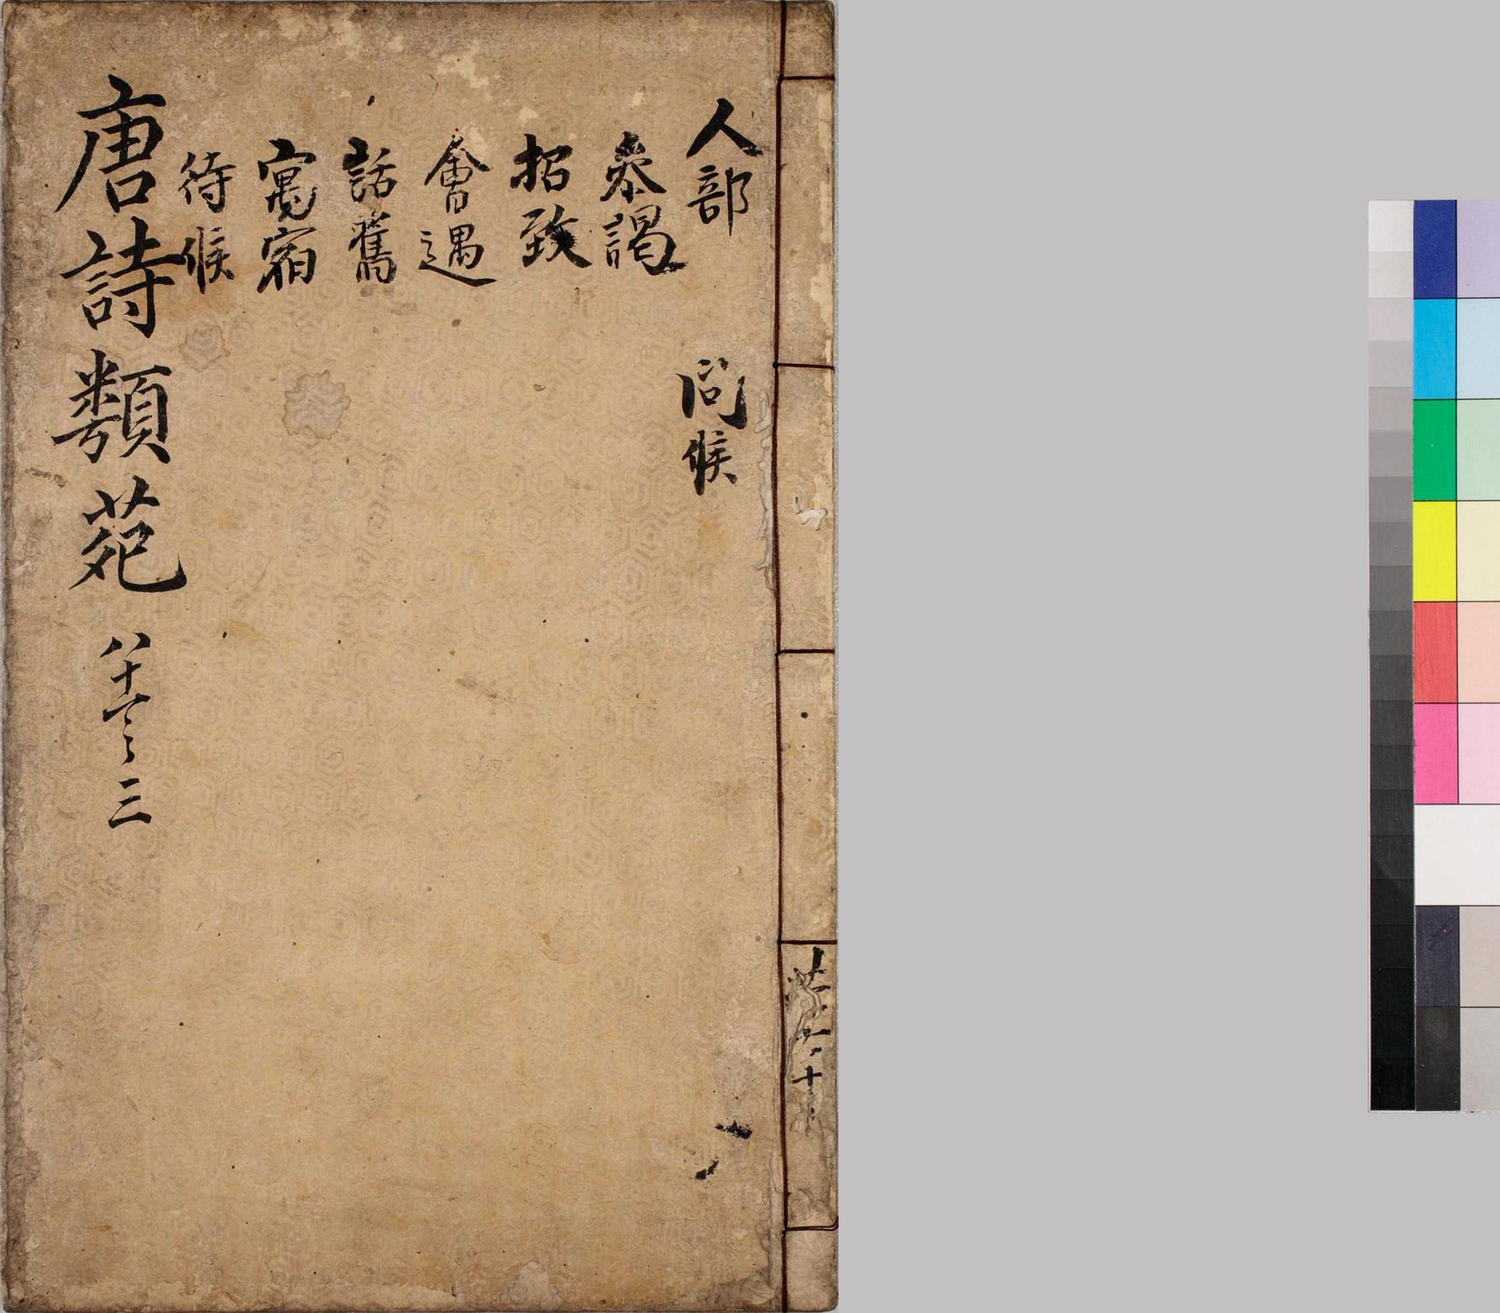 人部 問候
叅謁
招致
會遇
話舊
寓宿
待候
唐詩類苑 八十一之三